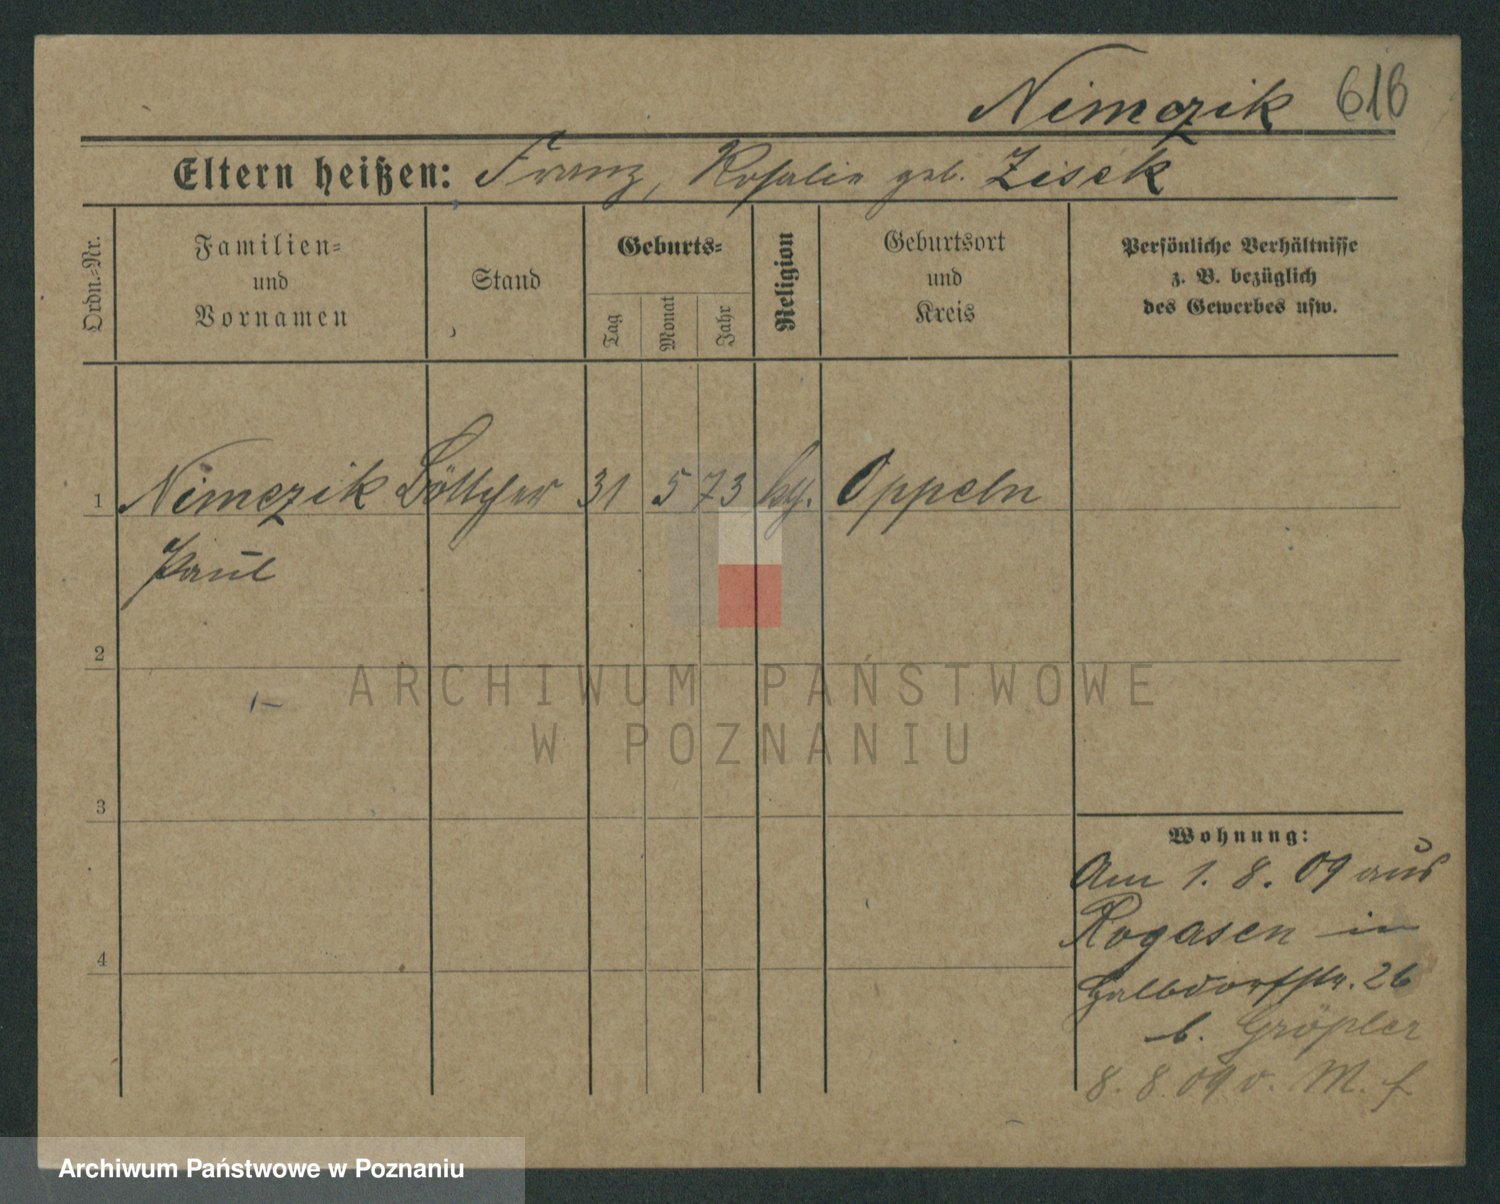 Nimczik 616
Eltern heißen: Franz, Rosalie geb. Zisek
Ordn.=Nr.
Familien=
und
Vornamen
Stand
Geburts=
Tag
Monat
Jahr
Religion
Geburtsort
und
Kreis
Persönliche Verhältnisse
z. B. bezüglich
des Gewerbes usw.
1 Nimczik Böttcher 31 5 73 kth. Oppeln
Paul
2
3
4
Wohnung:
Am 1. 8. 09 aus
Rogasen in
Halbdorfstr. 26
b. Gröpler
8. 8. 09 v. M. f
ARCHIWUM PAŃSTWOWE
W POZNANIU
Archiwum Państwowe w Poznaniu